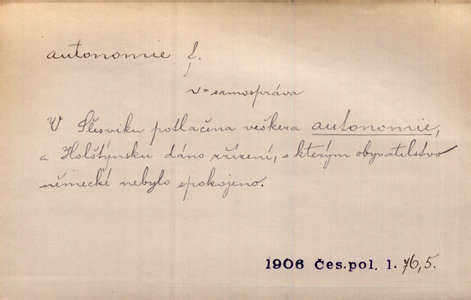 autonomie f.
v = samospráva
V Šlesviku potlačena veškera autonomie,
a Holštýnsku dáno zřízení, s kterým obyvatelstvo
německé nebylo spokojeno.
1906 Čes.pol. 1. 76,5.